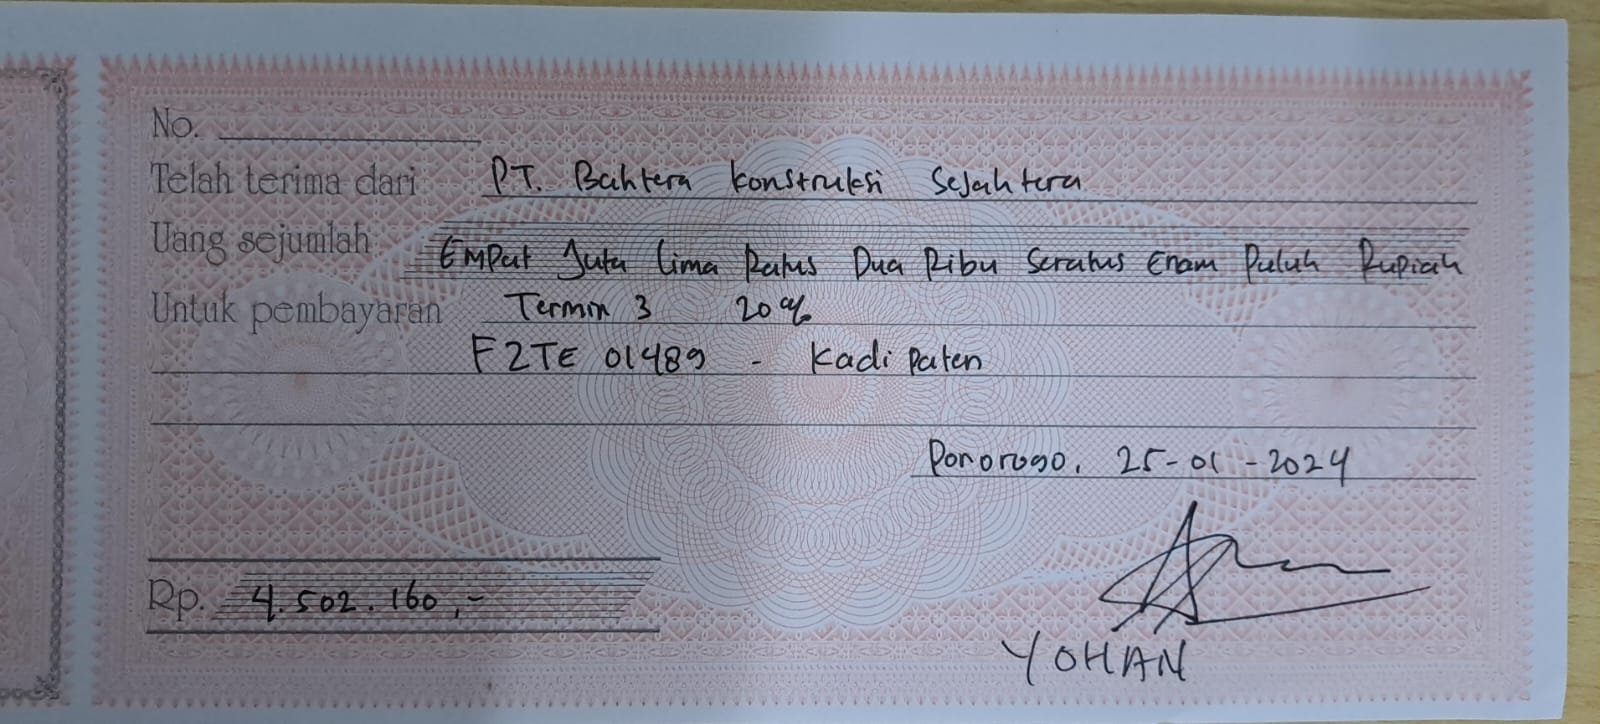 No.
Telah terima dari PT. Bahtera Konstruksi Sejahtera
Uang sejumlah Empat Juta Lima Ratus Dua Ribu Seratus Enam Puluh Rupiah
Untuk pembayaran Termin 3 20%
F2TE 01489 - Kadipaten
Ponorogo, 25-01-2024
Rp. 4.502.160,-
YOHAN